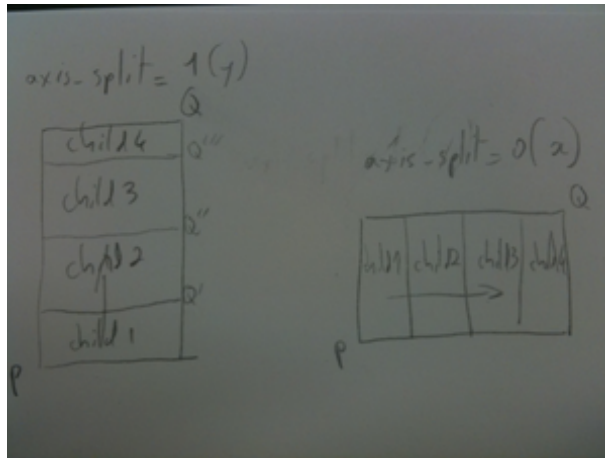 axis_split = 1 (y)
Q
child 4
Q'''
child 3
Q''
child 2
Q'
child 1
P
axis_split = 0 (x)
Q
child1 child2 child3 child4
P